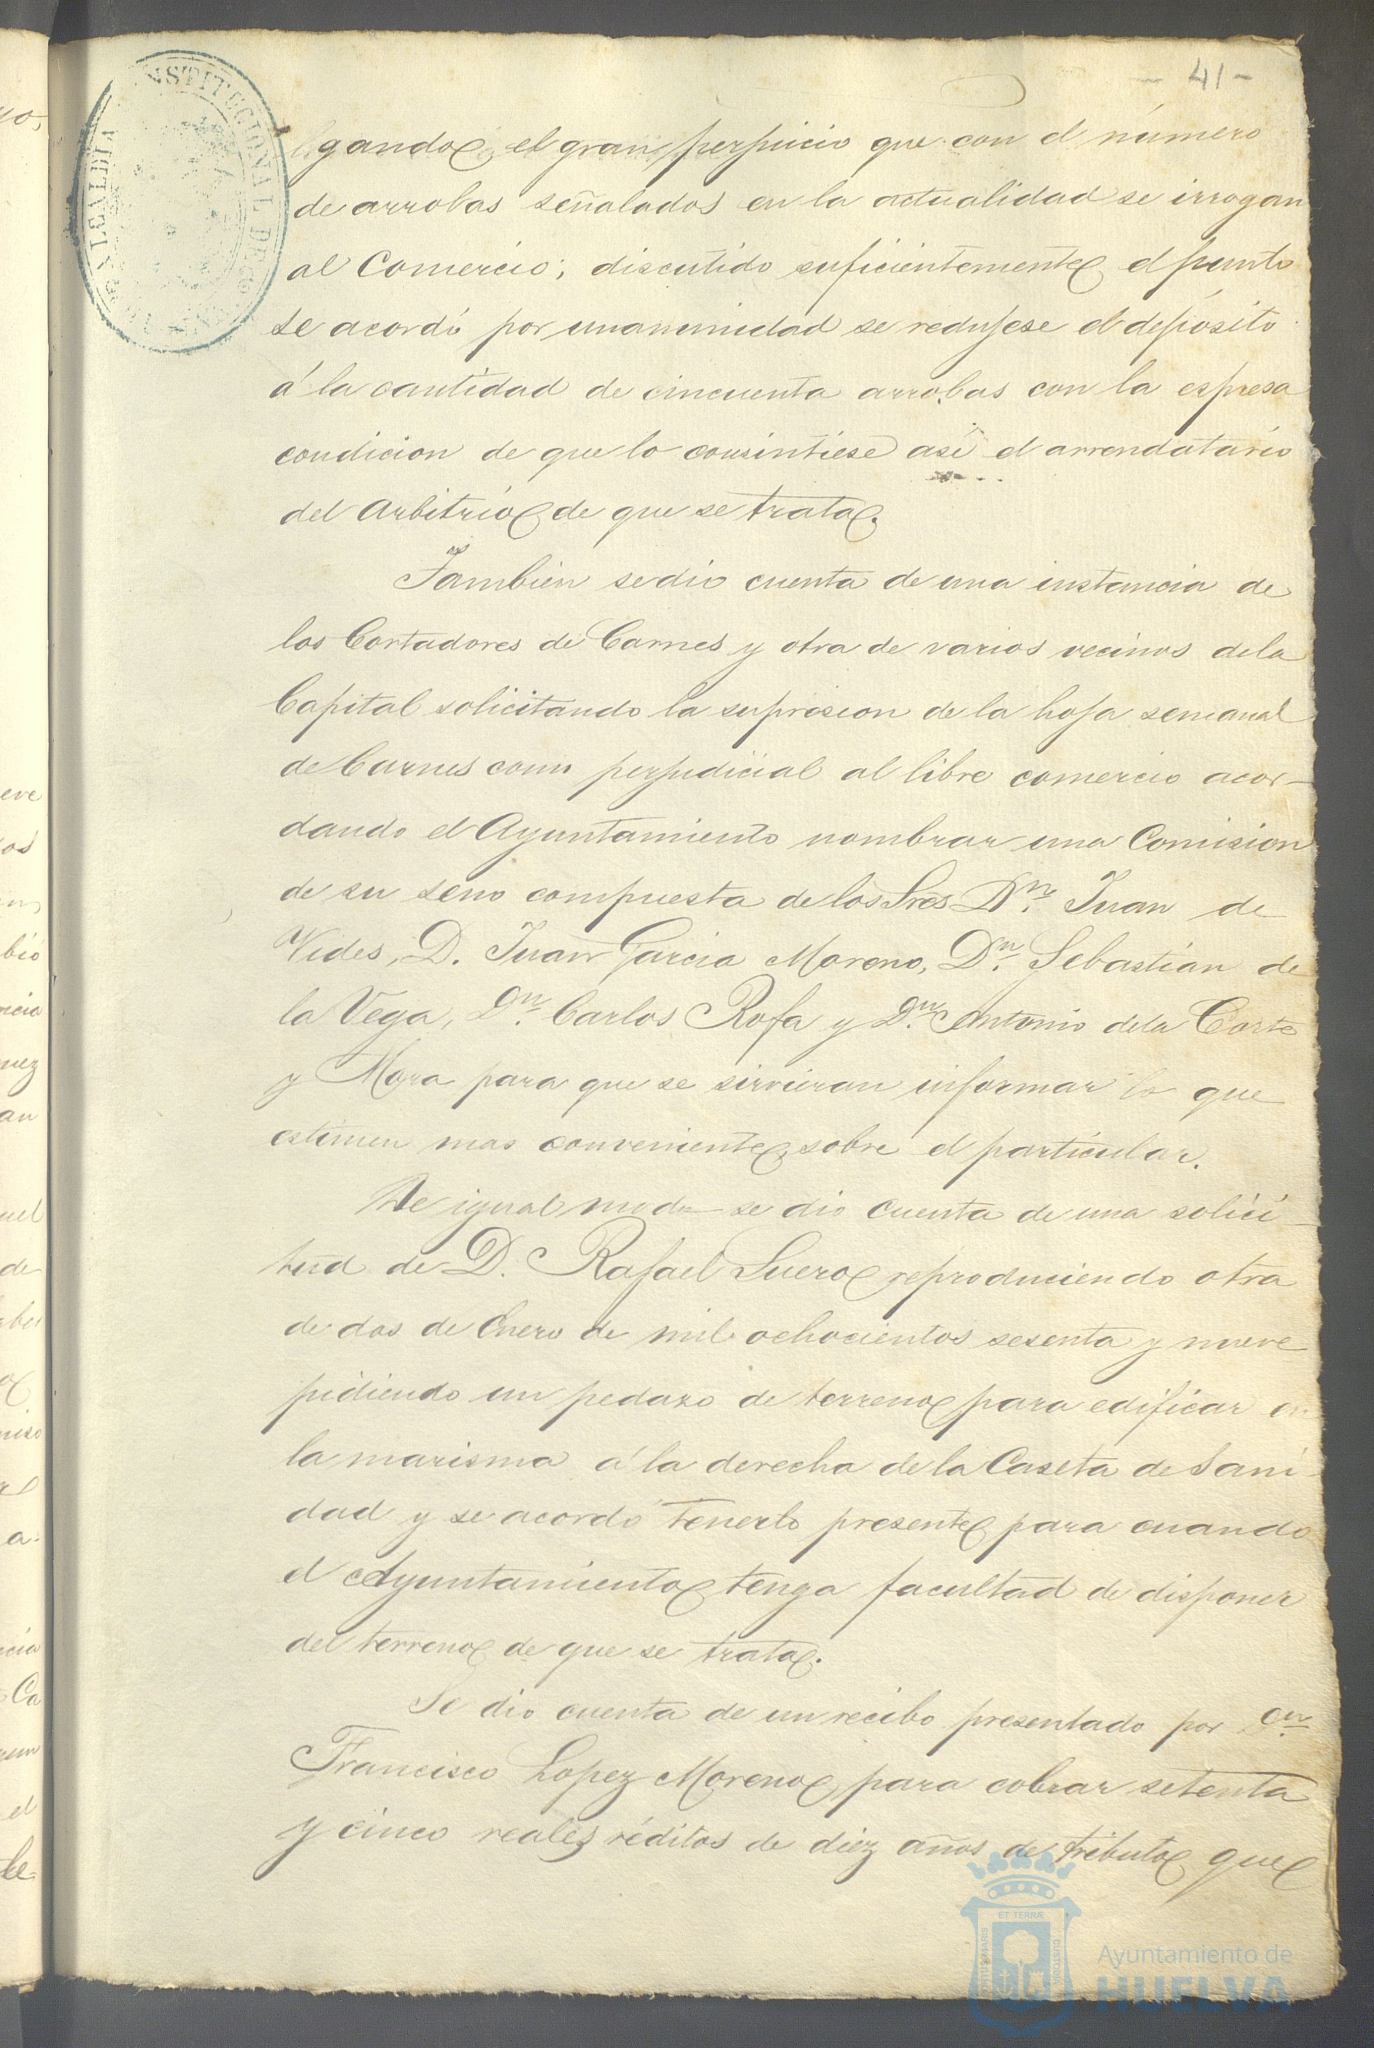 - 41 -
ALCALDIA CONSTITUCIONAL DE
gando el gran perjuicio que con el número
de arrobas señalados en la actualidad se irrogan
al Comercio; discutido suficientemente el punto
se acordó por unanimidad se redujese el depósito
á la cantidad de cincuenta arrobas con la espresa
condicion de que lo consintiese asi el arrendatario
del Arbitrio de que se trata.
Tambien se dio cuenta de una instancia de
los Cortadores de Carnes y otra de varios vecinos de la
Capital solicitando la supresion de la hoja semanal
de Carnes como perjudicial al libre comercio acor-
dando el Ayuntamiento nombrar una Comision
de su seno compuesta de los Sres Dn. Juan de
Vides, D. Juan Garcia Moreno, Dn. Sebastian de
la Vega, Dn. Carlos Rofa y Dn. Antonio de la Corte
y Mora para que se sirvieran informar lo que
estimen mas conveniente sobre el particular.
De igual modo se dio cuenta de una solici-
tud de D. Rafael Suero reproduciendo otra
de dos de Enero de mil ochocientos sesenta y nueve
pidiendo un pedazo de terreno para edificar en
la marisma á la derecha de la Caseta de Sani-
dad y se acordó tenerlo presente para cuando
el Ayuntamiento tenga facultad de disponer
del terreno de que se trata.
Se dio cuenta de un recibo presentado por Dn.
Francisco Lopez Moreno para cobrar setenta
y cinco reales réditos de diez años de tributo que
Ayuntamiento de
HUELVA